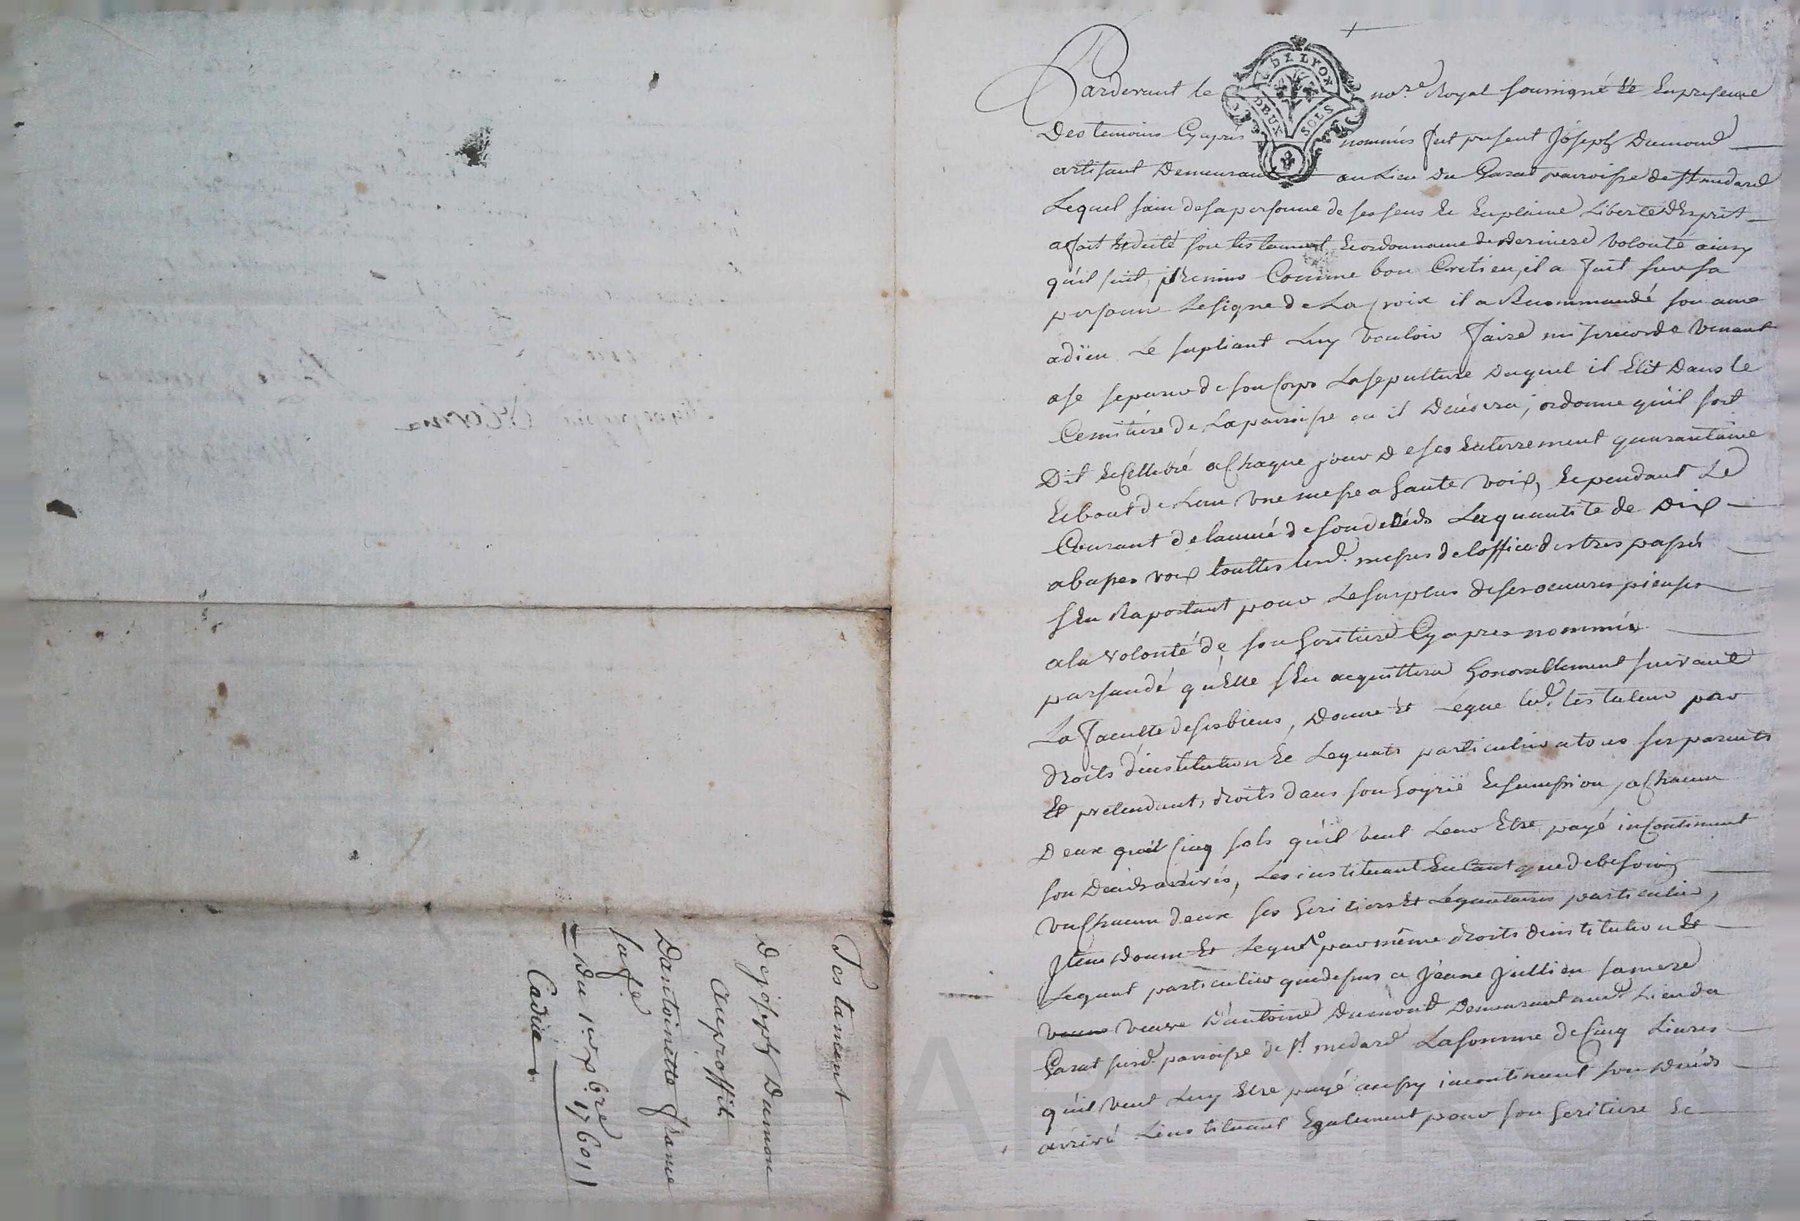 Testament
De joseph Dumon
au proffit
Dantoinette france
sa fe
Du 1er xbre 1760
Cadier
G. DE LYON
DEUX SOLS
Pardevant le no.re Royal soussigné Et En presence
Des temoins Cy aprés nommés fut present Joseph Dumond
artisant Demeurant au Lieu Du Garat parroisse de st medard
Lequel sain de sa personne de ses sens Et En plaine Liberté D'Esprit
a fait Et dicté son testament Et ordonnance de derniere volonté ainsy
qu'il suit, premier Comme bon Cretien, il a fait sur sa
personne Le signe de La Croix il a Recommandé son ame
a dieu Le supliant Luy vouloir faire misericorde venant
a se separer de son Corps La sepulture Duquel il Elit Dans le
Cemitiere de La parroisse ou il Decedera, ordonne qu'il soit
Dit Et Cellebré a Chaque jour de ses Enterrement quarantaine
Et bout de L'an une messe a haute voix, Et pendant Le
Courant de l'anné de son decéds La quantité de Dix
a basses voix touttes lesd. messes de l'office des trespassés
s'En Raportant pour Le surplus de ses oeuvres pieuses
a la volonté de son heritiere Cy apres nommée
persuadé qu'Elle s'En acquittera honorablement suivant
La faculté de ses biens, Donne Et Légue led. testateur par
droits d'institution Et Legats particulier a tous ses parents
Et pretendants droits dans son hoyrie Et sucession, a Chacun
D'eux cinq sols qu'il veut Leur Etre payé incontinent
son Decéds arrivés, Les instituant En tant que de besoing
un Chacun deux ses heritiers Et Legataires particulier,
Item donne Et Legue par même droits dinstitution Et
Legat particulier que dessus a Jeane Jullien sa mere
veuve D'antoine Dumont Demeurant aud. Lieu du
Garat susd. parroisse de st. medard La somme de Cinq Livres
qu'il veut Luy Etre payé aussy incontinant son Decéds
arrivé L'instituant Egalement pour son heritiere Et
CHAREYRON